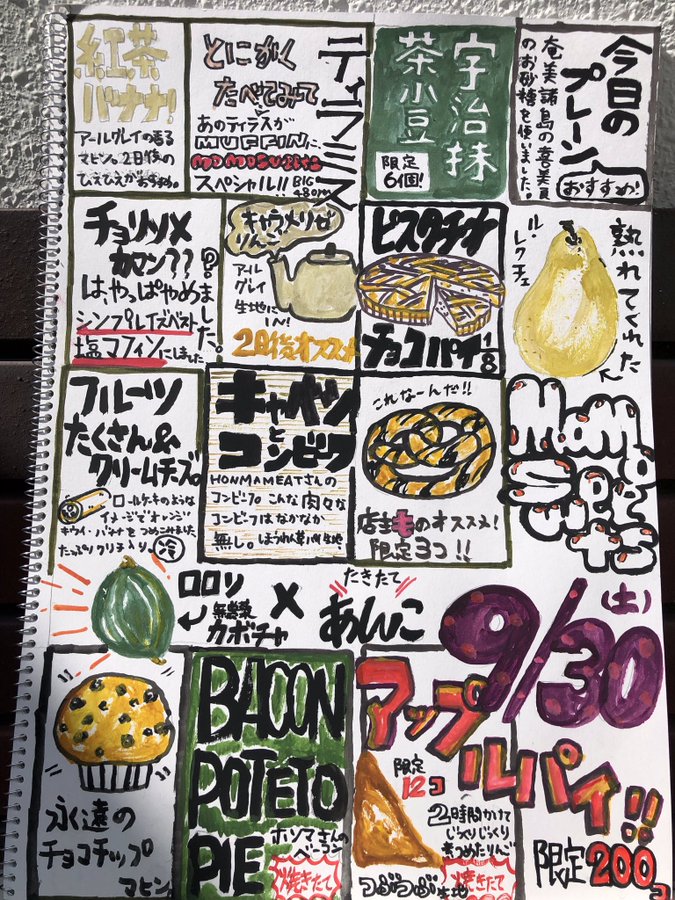 紅茶
バナナ!
アールグレイの香る
マヒン。2日後の
ひえひえがおすすめ。
とにかく
たべてみて
あのティラスが
MUFFINに、
MOMOSUEHI
スペシャル!! BIG
480yen
ティラミス
宇治抹
茶小豆
限定
6個!
今日の
プレーン
奄美諸島の喜美
のお砂糖を使いました。
おすすめ!
チョリソメ
カマン??
は、やっぱやめま
した。
シンプルイズベスト
塩マフィンにしました
キャラメリゼ
りんご
アール
グレイ
生地に
IN!
2日後オススメ
ピスタチオ
チョコパイ 1/8
熟れてくれた
ル・
レクチェ
フルーツ
たくさん&
クリームチーズ。
ロールケーキのような
イメージでオレンジ
キウイ・バナナをつめこみました
たっぷりクリーム入り。 冷
キャベツ
と
コンビーフ
HONMAMEATさんの
コンビーフの こんな 肉々な
コンビーフは なかなか
無し。ほうれん草バイ生地
これなーんだ!!
店主もものオススメ!
限定3コ!!
MOMO
Sweets
ロロン
無農薬
カボチャ
×
たきたて
あんこ
9/30
(土)
永遠の
チョコチップ
マヒン。
BACON
POTETO
PIE
ホンマさんの
ベーコン
焼きたて
アップルパイ!!
限定
12コ
2時間かけて
じっくりじっくり
煮つめたりんご
つぶつぶ生地
焼きたて
限定200コ